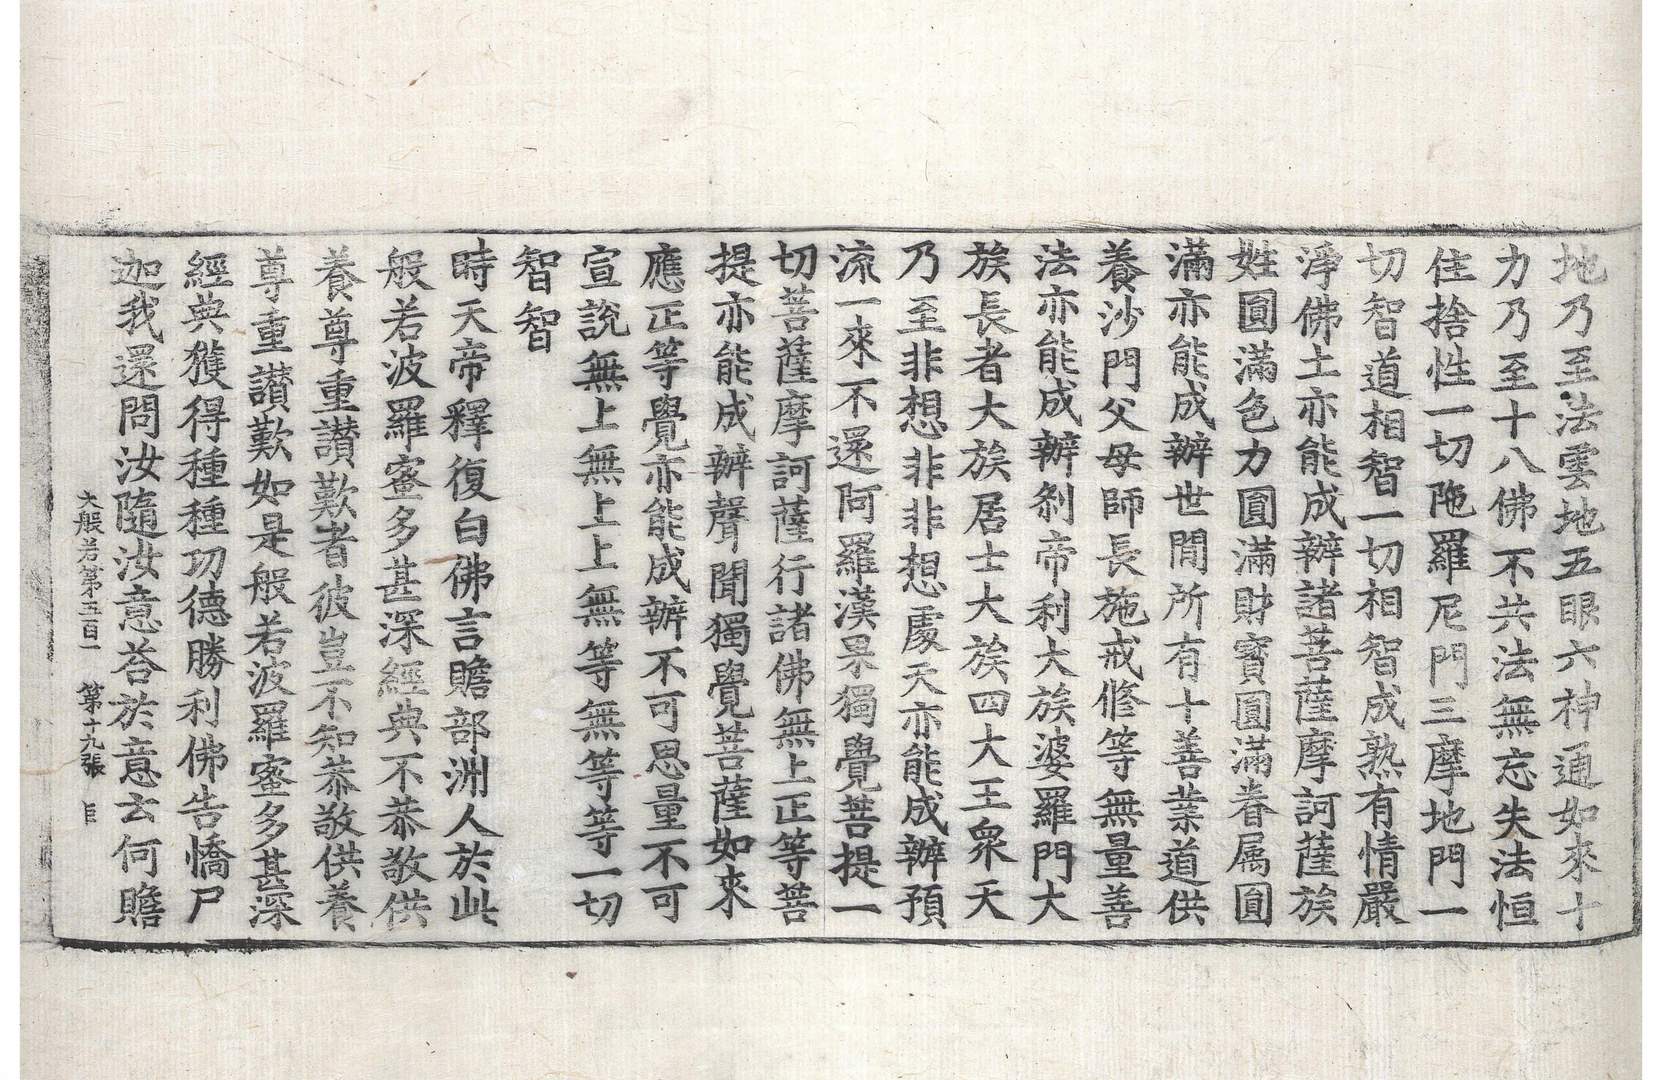 地乃至法雲地五眼六神通如來十
力乃至十八佛不共法無忘失法恒
住捨性一切陁羅尼門三摩地門一
切智道相智一切相智成熟有情嚴
淨佛土亦能成辦諸菩薩摩訶薩族
姓圓滿色力圓滿財寶圓滿眷属圓
滿亦能成辦世間所有十善業道供
養沙門父母師長施戒修等無量善
法亦能成辦刹帝利大族婆羅門大
族長者大族居士大族四大王衆天
乃至非想非非想處天亦能成辦預
流一來不還阿羅漢果獨覺菩提一
切菩薩摩訶薩行諸佛無上正等菩
提亦能成辦聲聞獨覺菩薩如來
應正等覺亦能成辦不可思量不可
宣說無上無上上無等無等等一切
智智
時天帝釋復白佛言贍部洲人於此
般若波羅蜜多甚深經典不恭敬供
養尊重讃歎者彼豈不知恭敬供養
尊重讃歎如是般若波羅蜜多甚深
經典獲得種種功德勝利佛告憍尸
迦我還問汝隨汝意荅於意云何贍
大般若第五百一 第十九張